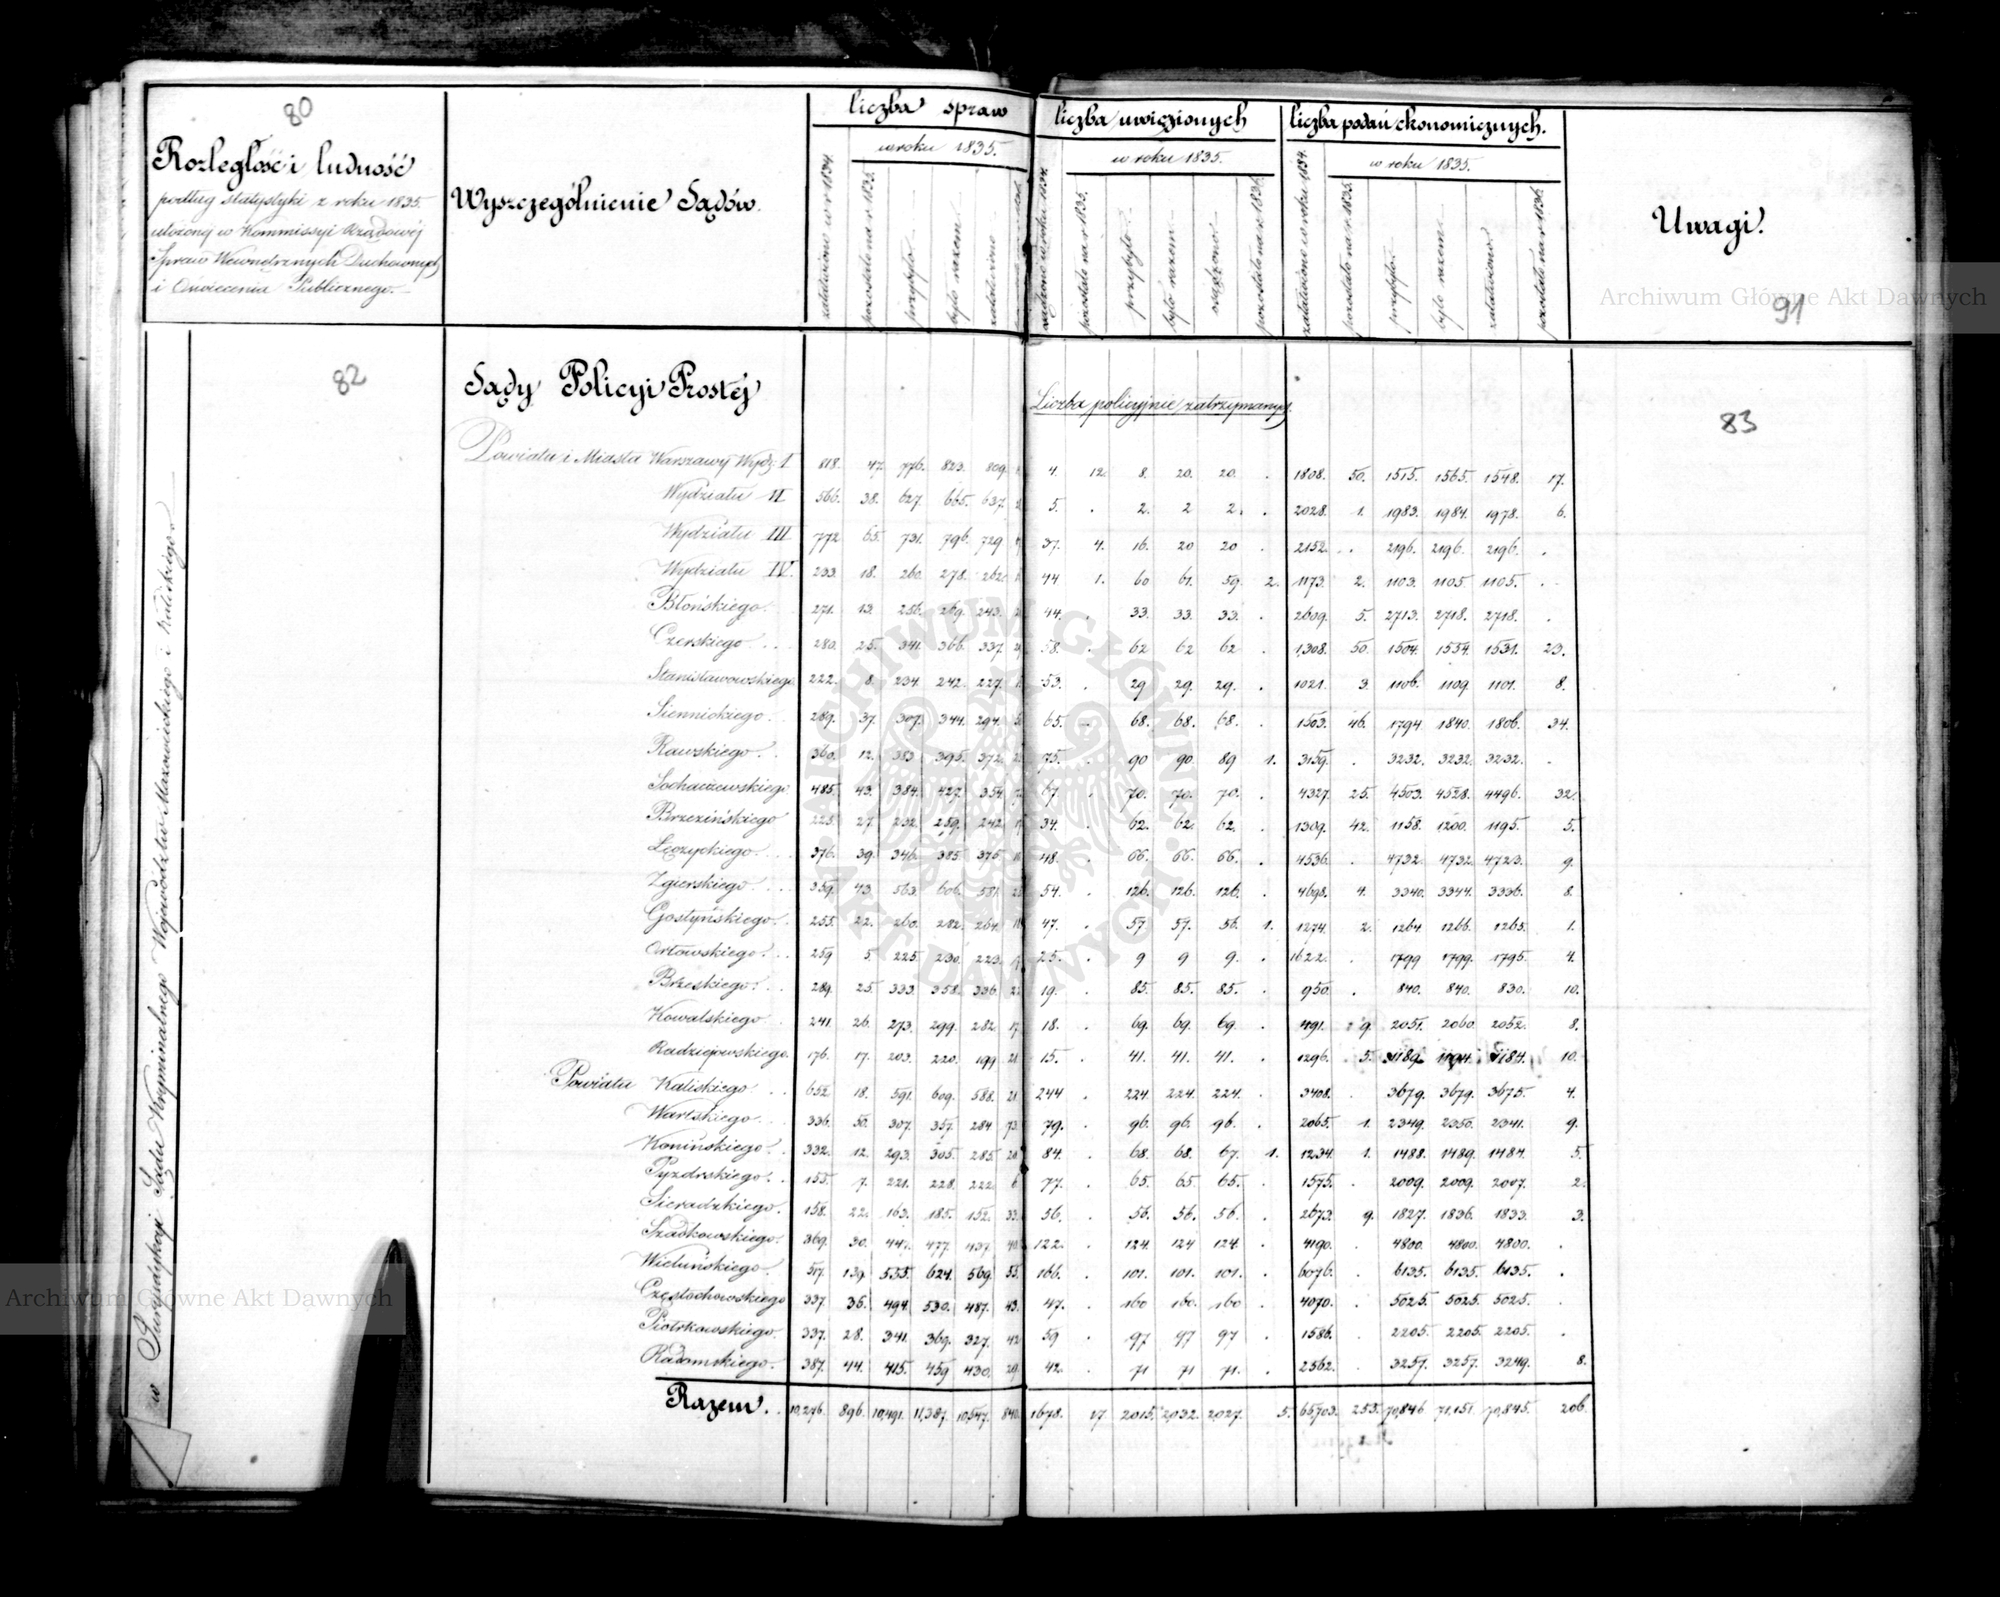 80
Rozległość i ludność
podług statystyki z roku 1835.
ułożonej w Kommissyi Rządowéj
Spraw Wewnętrznych Duchownych
i Oświecenia Publicznego.
Wyszczególnienie Sądów.
liczba spraw
w roku 1835.
załatwiono w r 1834.
pozostało na r 1835.
przybyło
było razem
załatwiono
liczba uwięzionych
w roku 1835.
pozostało na r 1835.
przybyło
było razem
osądzono
pozostało na r. 1836.
liczba podań ekonomicznych.
w roku 1835.
załatwiono w roku 1834.
pozostało na r. 1835.
przybyło
było razem
załatwiono
pozostało na r 1836.
Uwagi.
Archiwum Główne Akt Dawnych
91
82
83
w Juryzdykcyi Sądu Kryminalnego Województw Mazowieckiego i Kaliskiego
Sądy Policyi Prostéj
Liczba policyjnie zatrzymanych.
Powiatu i Miasta Warszawy Wydz. I 818. 47. 776. 823. 809. 4. 12. 8. 20. 20. . 1808. 50. 1515. 1565. 1548. 17.
Wydziału II 566. 38. 627. 665. 637. 5. . 2. 2 2. . 2028. 1. 1983. 1984. 1978. 6.
Wydziału III 772 65. 731. 796. 729 37. 4. 16. 20 20 . 2152. . 2196. 2196. 2196. .
Wydziału IV. 233. 18. 260. 278. 262. 44 1. 60 61. 59. 2. 1173. 2. 1103. 1105 1105. .
Błońskiego. 271. 13. 256. 269. 243. 44. 33. 33. 33. . 2609. 5. 2713. 2718. 2718. .
Czerskiego 280. 25. 341. 366. 337. 58. . 62 62 62 . 1308. 50. 1504. 1554. 1531. 23.
Stanisławowskiego 222. 8. 234. 242. 227. 53. . 29 29. 29. . 1021. 3. 1106. 1109. 1101. 8.
Siennickiego. 289. 37. 307. 344. 294. 65. . 68. 68. 68. . 1503. 46. 1794 1840. 1806. 34.
Rawskiego. 360. 12. 383 395. 372. 75. . 90 90. 89 1. 3159. . 3232. 3232. 3232. .
Sochaczewskiego 485. 43. 384. 427. 354 67. . 70. 70. 70. . 4327. 25. 4503. 4528. 4496. 32.
Brzezińskiego 225. 27 232. 259. 242. 34. 62. 62. 62. . 1309. 42. 1158. 1200. 1195. 5.
Łęczyckiego. 376. 39. 346. 385. 375. 48. . 66. 66. 66. . 4536. . 4732. 4732. 4723. 9.
Zgierskiego 359. 43. 563. 606. 581. 54. 126. 126. 126. . 4698. 4. 3340. 3344. 3336. 8.
Gostyńskiego. 255. 22. 260. 282. 264. 47. . 57 57. 56. 1. 1274. 2. 1264. 1266. 1265. 1.
Orłowskiego. 259 5 225. 230. 223. 25. . 9 9 9. . 1622. . 1799 1799. 1795. 4.
Brzeskiego. 289. 25. 333. 358. 336. 22. 19. . 85. 85. 85. . 950. . 840. 840. 830. 10.
Kowalskiego 241. 26. 273. 299. 282. 17. 18. . 69. 69. 69. . 491. 9. 2051. 2060. 2052. 8.
Radziejowskiego. 176. 17. 203. 220. 199 21. 15. . 41. 41. 41. . 1296. 5. 1189. 1194. 1184. 10.
Powiatu Kaliskiego 652. 18. 591. 609. 588. 21. 244 . 224. 224. 224. . 3408. . 3679. 3679. 3675. 4.
Wartskiego 336. 50. 307. 357. 284. 73. 79. . 96. 96. 96. . 2065. 1. 2349. 2350. 2341. 9.
Konińskiego. 332. 12. 293. 305. 285. 20. 84. . 68. 68. 67. 1. 1234. 1. 1488. 1489. 1484. 5.
Pyzdrskiego. 155. 7. 221. 228. 222. 6 77. . 65 65 65. . 1575. . 2009. 2009. 2007. 2.
Sieradzkiego. 158. 22. 163. 185. 152. 33. 56. . 56. 56. 56. . 2673. 9. 1827. 1836. 1833. 3.
Szadkowskiego. 369. 30. 447. 477. 437. 40. 122. . 124. 124 124. . 4190. . 4800. 4800. 4800. .
Wieluńskiego. 517. 139. 624. 569. 55. 166. . 101. 101. 101. . 6076. . 6135. 6135. 6135. .
Częstochowskiego 337. 36. 494. 530. 487. 43. 47. . 160 160. 160 . 4070. . 5025. 5025. 5025. .
Piotrkowskiego. 337. 28. 341. 369. 327. 42. 59 . 97 97 97 . 1586. . 2205. 2205. 2205. .
Radomskiego. 387. 44. 415. 459 430. 29. 42. . 71 71 71. . 2562. . 3257. 3257. 3249. 8.
Razem. 10,276. 896. 10,491. 11,387. 10,547. 840. 1678. 17 2015. 2,032. 2,027. 5. 65,703. 253. 70,846 71,151. 70,845. 206.
Archiwum Główne Akt Dawnych
ARCHIWUM GŁÓWNE AKT DAWNYCH